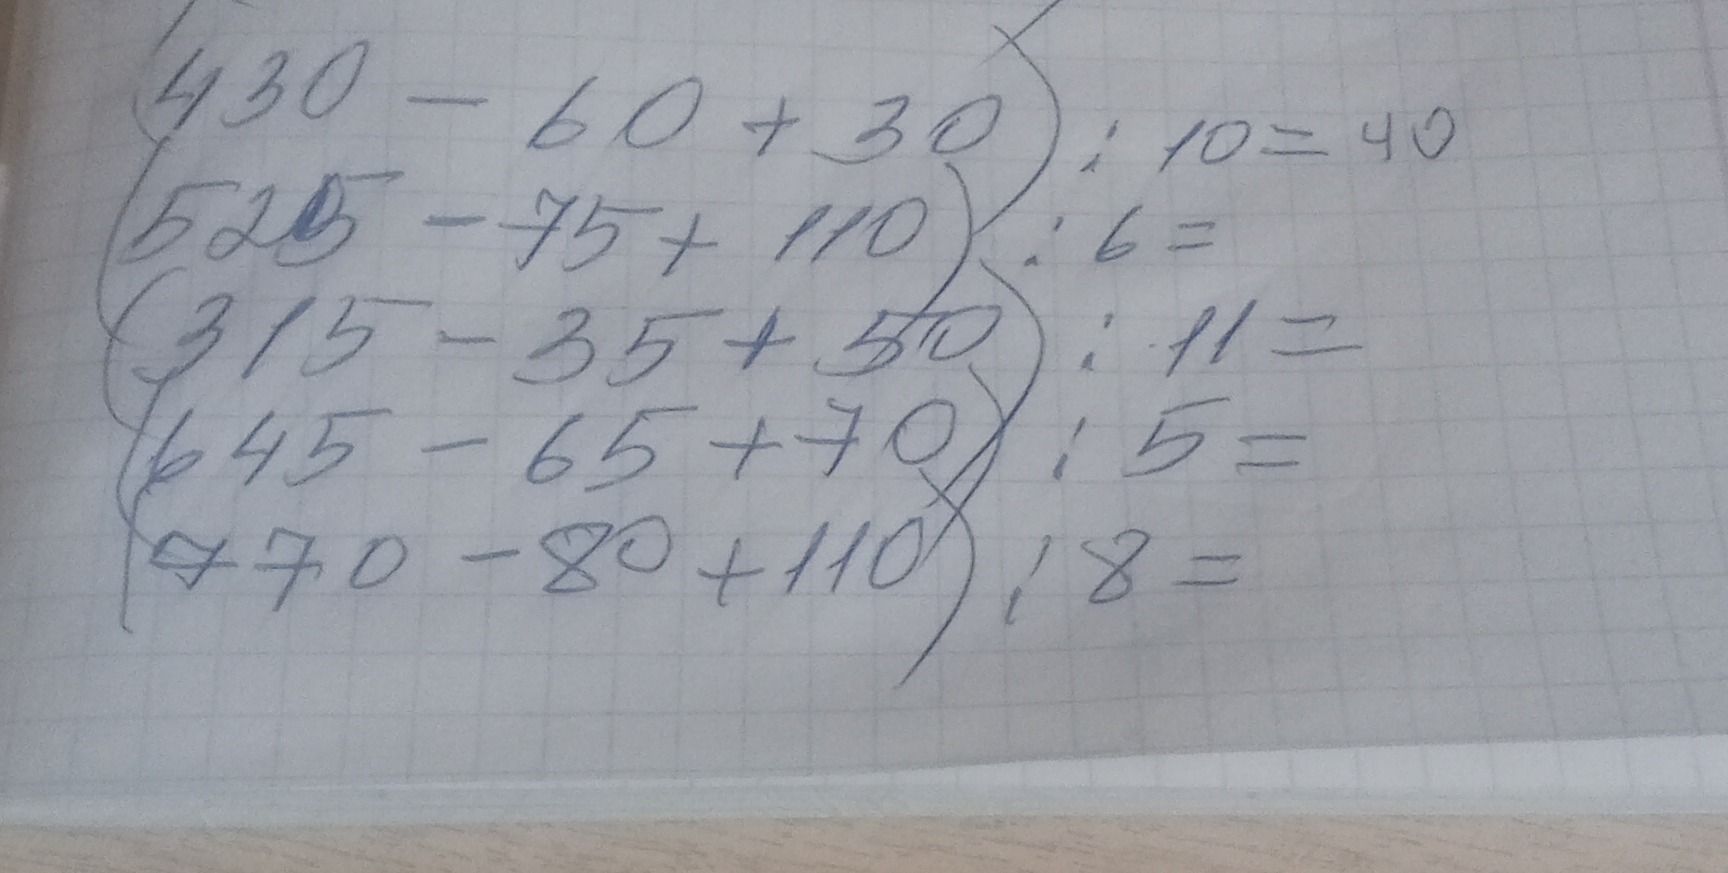 (430 - 60 + 30) : 10 = 40
(525 - 75 + 110) : 6 =
(315 - 35 + 50) : 11 =
(645 - 65 + 70) : 5 =
(770 - 80 + 110) : 8 =